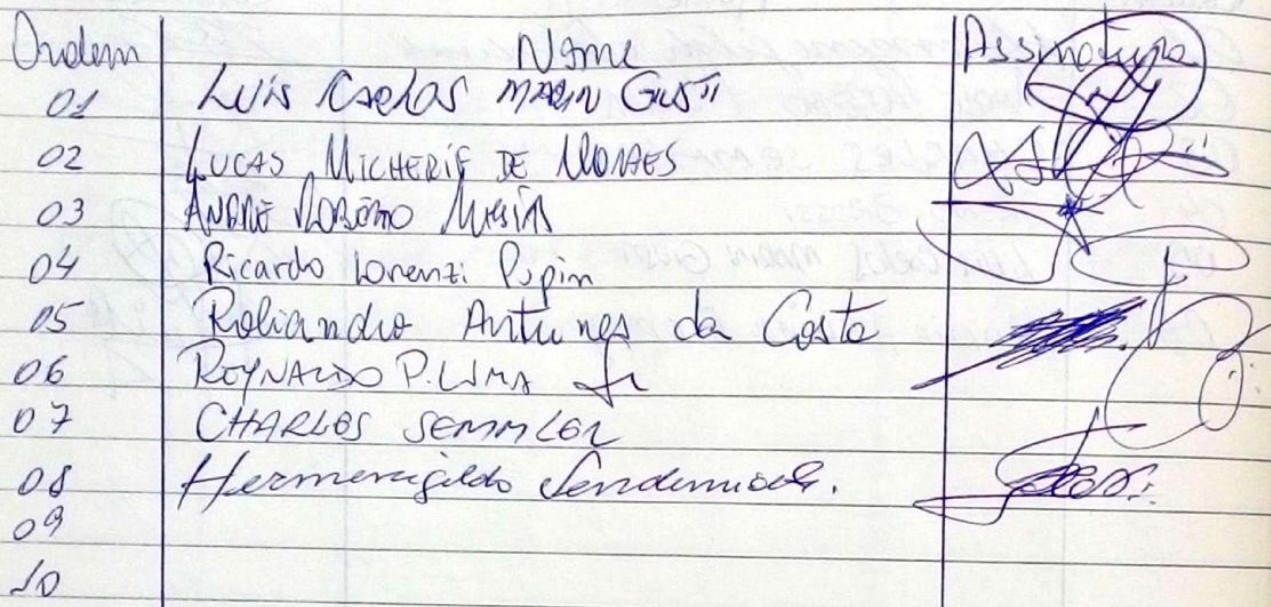 Ordem Nome Assinatura
01 Luis Carlos MARIN GUSTI
02 LUCAS MICHERIF DE MORAES
03 ANDRÉ ROBERTO
04 Ricardo Lorenzi Pupin
05 Roliandro Antunes da Costa
06 REYNALDO P. LIMA Jr
07 CHARLES SEMMLER
08 Hermenigildo
09
10